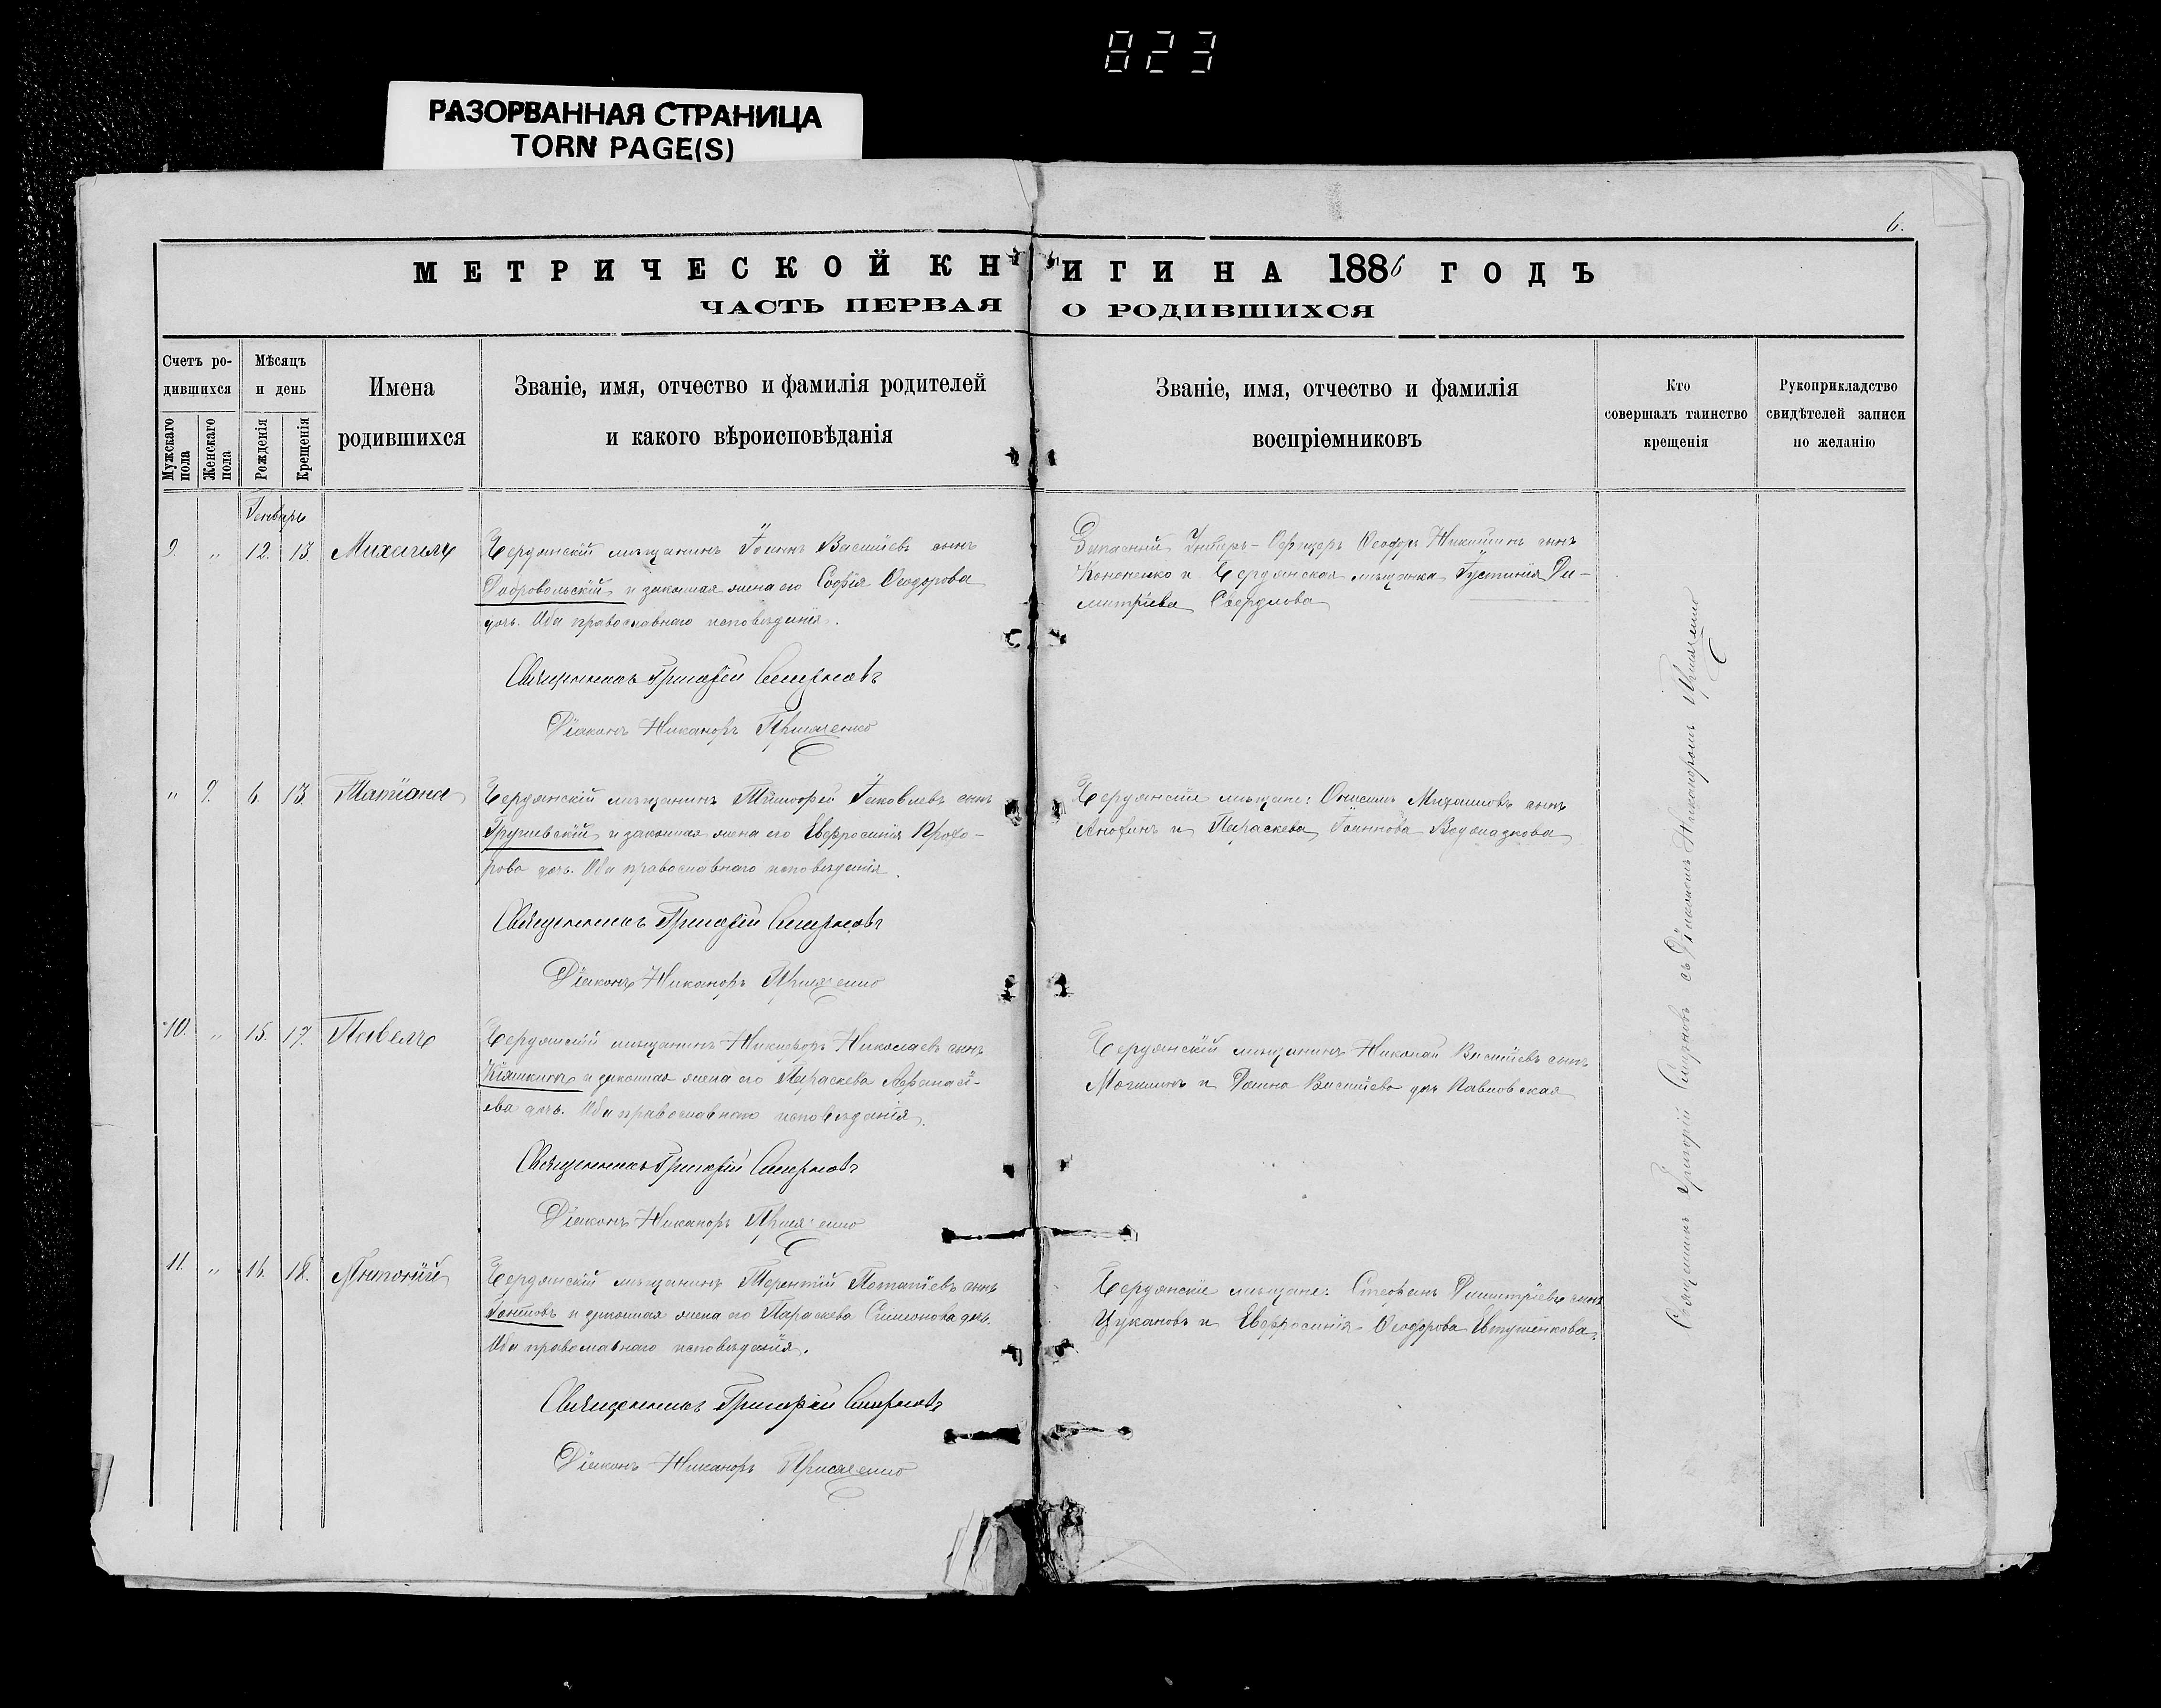 823
РАЗОРВАННАЯ СТРАНИЦА
TORN PAGE(S)
6.
МЕТРИЧЕСКОЙ КНИГИ НА 1886 ГОДЪ
ЧАСТЬ ПЕРВАЯ О РОДИВШИХСЯ
Счетъ ро-
дившихся
Мужскаго пола
Женскаго пола
Мѣсяцъ
и день
Рожденія
Крещенія
Имена
родившихся
Званіе, имя, отчество и фамилія родителей
и какого вѣроисповѣданія
Званіе, имя, отчество и фамилія
воспріемниковъ
Кто
совершалъ таинство
крещенія
Рукоприкладство
свидѣтелей записи
по желанію
Генварь
9. " 12. 13. Михаилъ
Бердянскій мѣщанинъ Іоаннъ Васильевъ сынъ
Добровольскій и законная жена его Софія Ѳеодорова
дочь. Оба православнаго исповѣданія.
Запасный Унтеръ-Офицеръ Ѳеодоръ сынъ
Кононенко и Бердянская мѣщанка Іустинія Ди-
митріева
Священникъ Григорій Смирновъ
Діаконъ Никаноръ
" 9. 6. 13. Татіана
Бердянскій мѣщанинъ Тимоѳей Іаковлевъ сынъ
и законная жена его Евфросинія Прохо-
рова дочь. Оба православнаго исповѣданія.
Бердянскіе мѣщане: Онисимъ Михаиловъ сынъ
и Параскева Іоаннова
Священникъ Григорій Смирновъ
Діаконъ Никаноръ
10. " 15. 17. Павелъ
Бердянскій мѣщанинъ Никифоръ Николаевъ сынъ
и законная жена его Параскева Афанасі-
ева дочь. Оба православнаго исповѣданія.
Бердянскій мѣщанинъ Николай Васильевъ сынъ
и Васильева дочь Павловская
Священникъ Григорій Смирновъ
Діаконъ Никаноръ
11. " 16. 18. Антоній
Бердянскій мѣщанинъ Терентій Потапіевъ сынъ
и законная жена его Параскева Симеонова дочь.
Оба православнаго исповѣданія.
Бердянскіе мѣщане: Стефанъ Димитріевъ сынъ
Цукановъ и Евфросинія Ѳеодорова Евтушенкова.
Священникъ Григорій Смирновъ
Діаконъ Никаноръ
Священникъ Григорій Смирновъ съ Діакономъ Никаноромъ